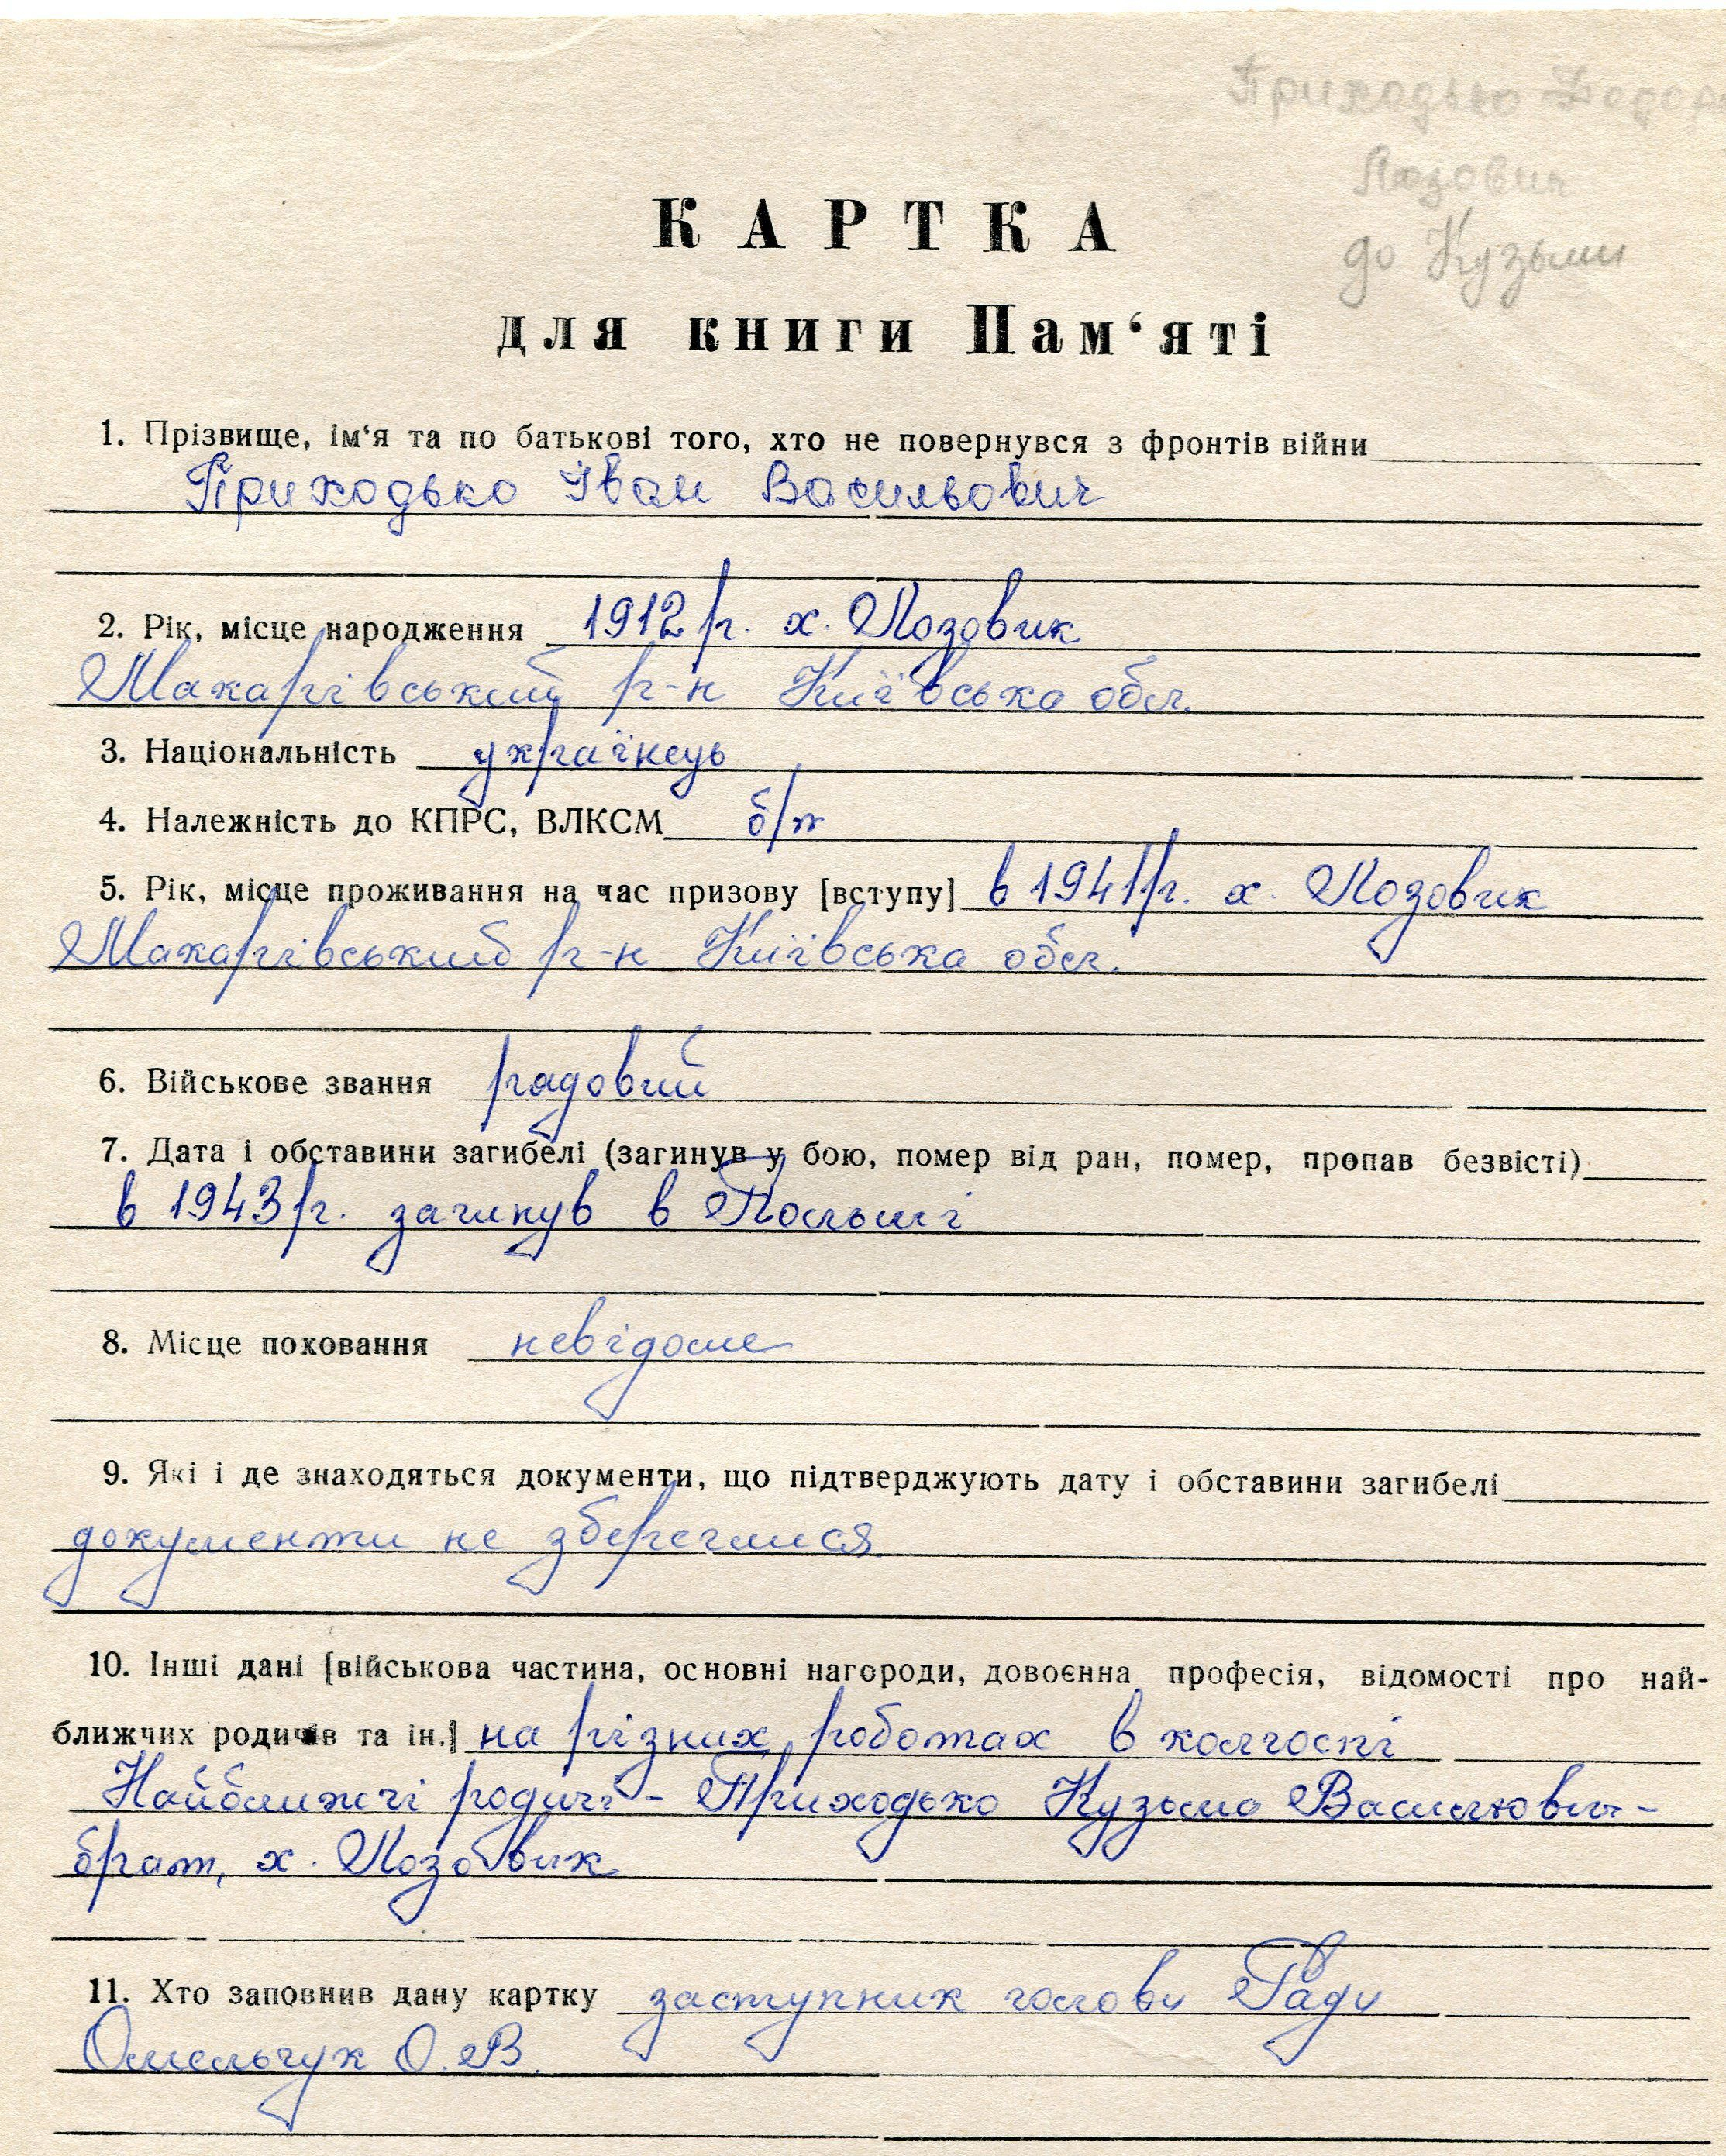 Приходько Федора
Лозовик
до Кузьми
КАРТКА
для книги Пам‘яті
1. Прізвище, ім‘я та по батькові того, хто не повернувся з фронтів війни
Приходько Іван Васильович
2. Рік, місце народження 1912 р. х. Лозовик
Макарівський р-н Київська обл.
3. Національність українець
4. Належність до КПРС, ВЛКСМ б/п
5. Рік, місце проживання на час призову [вступу] в 1941 р. х. Лозовик
Макарівський р-н Київська обл.
6. Військове звання рядовий
7. Дата і обставини загибелі (загинув у бою, помер від ран, помер, пропав безвісті)
в 1943 р. загинув в Польші
8. Місце поховання невідоме
9. Які і де знаходяться документи, що підтверджують дату і обставини загибелі
документи не збереглися
10. Інші дані [військова частина, основні нагороди, довоєнна професія, відомості про най-
ближчих родичів та ін.] на різних роботах в колгоспі
Найближчі родичі - Приходько Кузьма Васильович -
брат, х. Лозовик
11. Хто заповнив дану картку заступник голови Ради
Омельчук О. В.